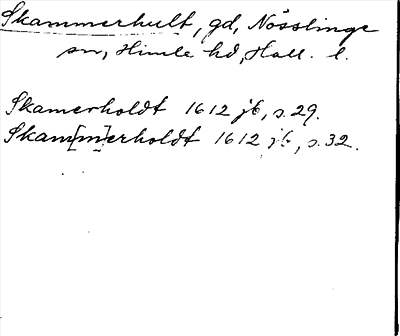 Skammerhult, gd, Nösslinge
sn, Himle hd, Hall. l.
Skamerholdt 1612 jb, s. 29.
Skam[m]erholdt 1612 jb, s. 32.